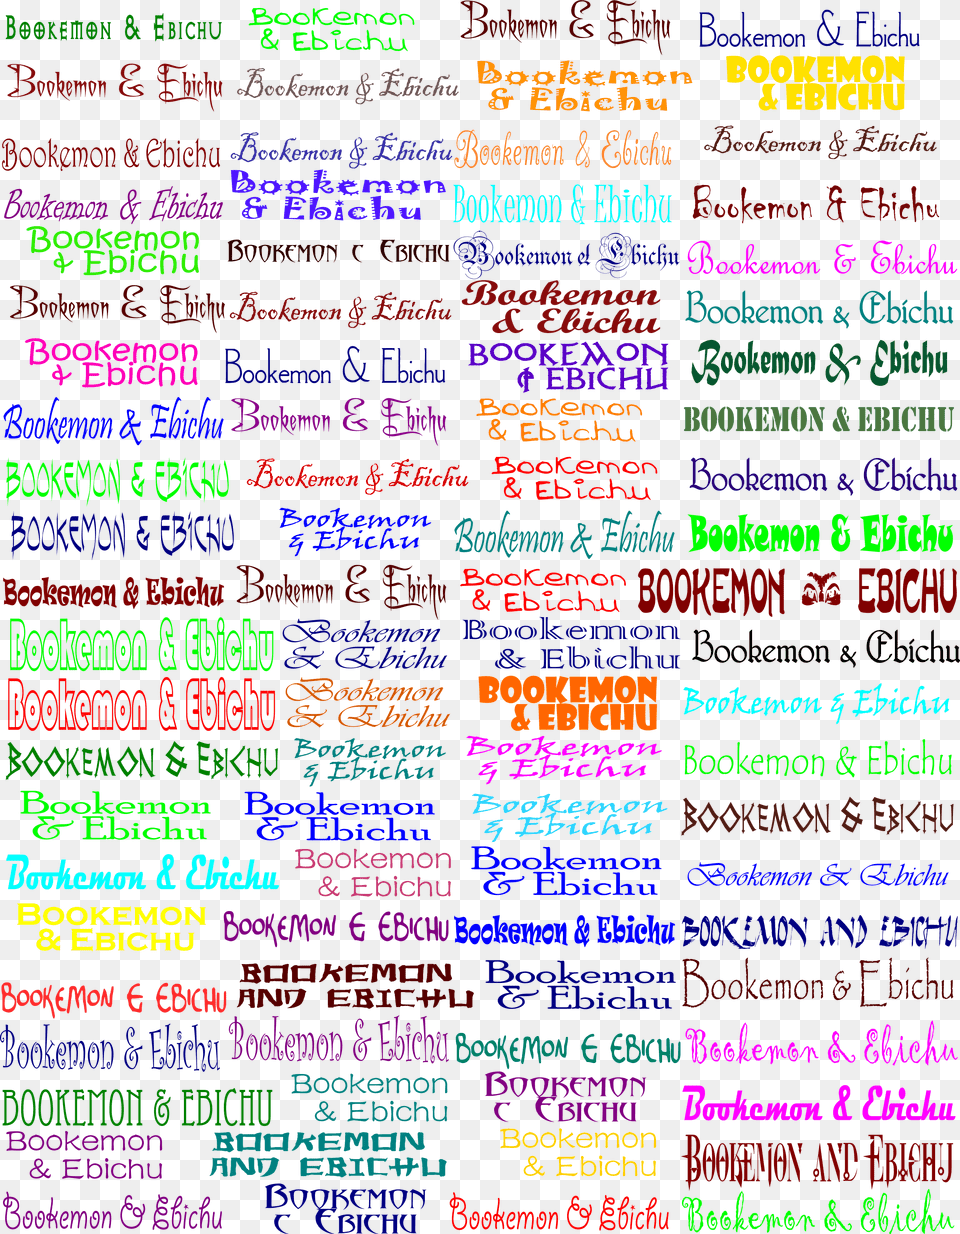 BOOKEMON & EBICHU
Bookemon
& Ebichu
Bookemon & Ebichu
Bookemon & Ebichu
Bookemon & Ebichu
Bookemon & Ebichu
Bookemon
& Ebichu
BOOKEMON
& EBICHU
Bookemon & Ebichu
Bookemon & Ebichu
Bookemon & Ebichu
Bookemon & Ebichu
Bookemon & Ebichu
Bookemon
& Ebichu
Bookemon & Ebichu
Bookemon & Ebichu
Bookemon
& Ebichu
BOOKEMON C EBICHU
Bookemon et Ebichu
Bookemon & Ebichu
Bookemon & Ebichu
Bookemon & Ebichu
Bookemon
& Ebichu
Bookemon & Ebichu
Bookemon
& Ebichu
Bookemon & Ebichu
BOOKEMON
& EBICHU
Bookemon & Ebichu
Bookemon & Ebichu
Bookemon & Ebichu
Bookemon
& Ebichu
BOOKEMON & EBICHU
BOOKEMON & EBICHU
Bookemon & Ebichu
Bookemon
& Ebichu
Bookemon & Ebichu
BOOKEMON & EBICHU
Bookemon
& Ebichu
Bookemon & Ebichu
Bookemon & Ebichu
Bookemon & Ebichu
Bookemon & Ebichu
Bookemon
& Ebichu
BOOKEMON EBICHU
Bookemon & Ebichu
Bookemon
& Ebichu
Bookemon
& Ebichu
Bookemon & Ebichu
Bookemon & Ebichu
Bookemon
& Ebichu
BOOKEMON
& EBICHU
Bookemon & Ebichu
BOOKEMON & EBICHU
Bookemon
& Ebichu
Bookemon
& Ebichu
Bookemon & Ebichu
Bookemon
& Ebichu
Bookemon
& Ebichu
Bookemon
& Ebichu
BOOKEMON & EBICHU
Bookemon & Ebichu
Bookemon
& Ebichu
Bookemon
& Ebichu
Bookemon & Ebichu
BOOKEMON
& EBICHU
BOOKEMON & EBICHU
Bookemon & Ebichu
BOOKEMON AND EBICHU
BOOKEMON & EBICHU
BOOKEMON
AND EBICHU
Bookemon
& Ebichu
Bookemon & Ebichu
Bookemon & Ebichu
Bookemon & Ebichu
BOOKEMON & EBICHU
Bookemon & Ebichu
BOOKEMON & EBICHU
Bookemon
& Ebichu
BOOKEMON
C EBICHU
Bookemon & Ebichu
Bookemon
& Ebichu
BOOKEMON
AND EBICHU
Bookemon
& Ebichu
BOOKEMON AND EBICHU
Bookemon & Ebichu
BOOKEMON
C EBICHU
Bookemon & Ebichu
Bookemon & Ebichu